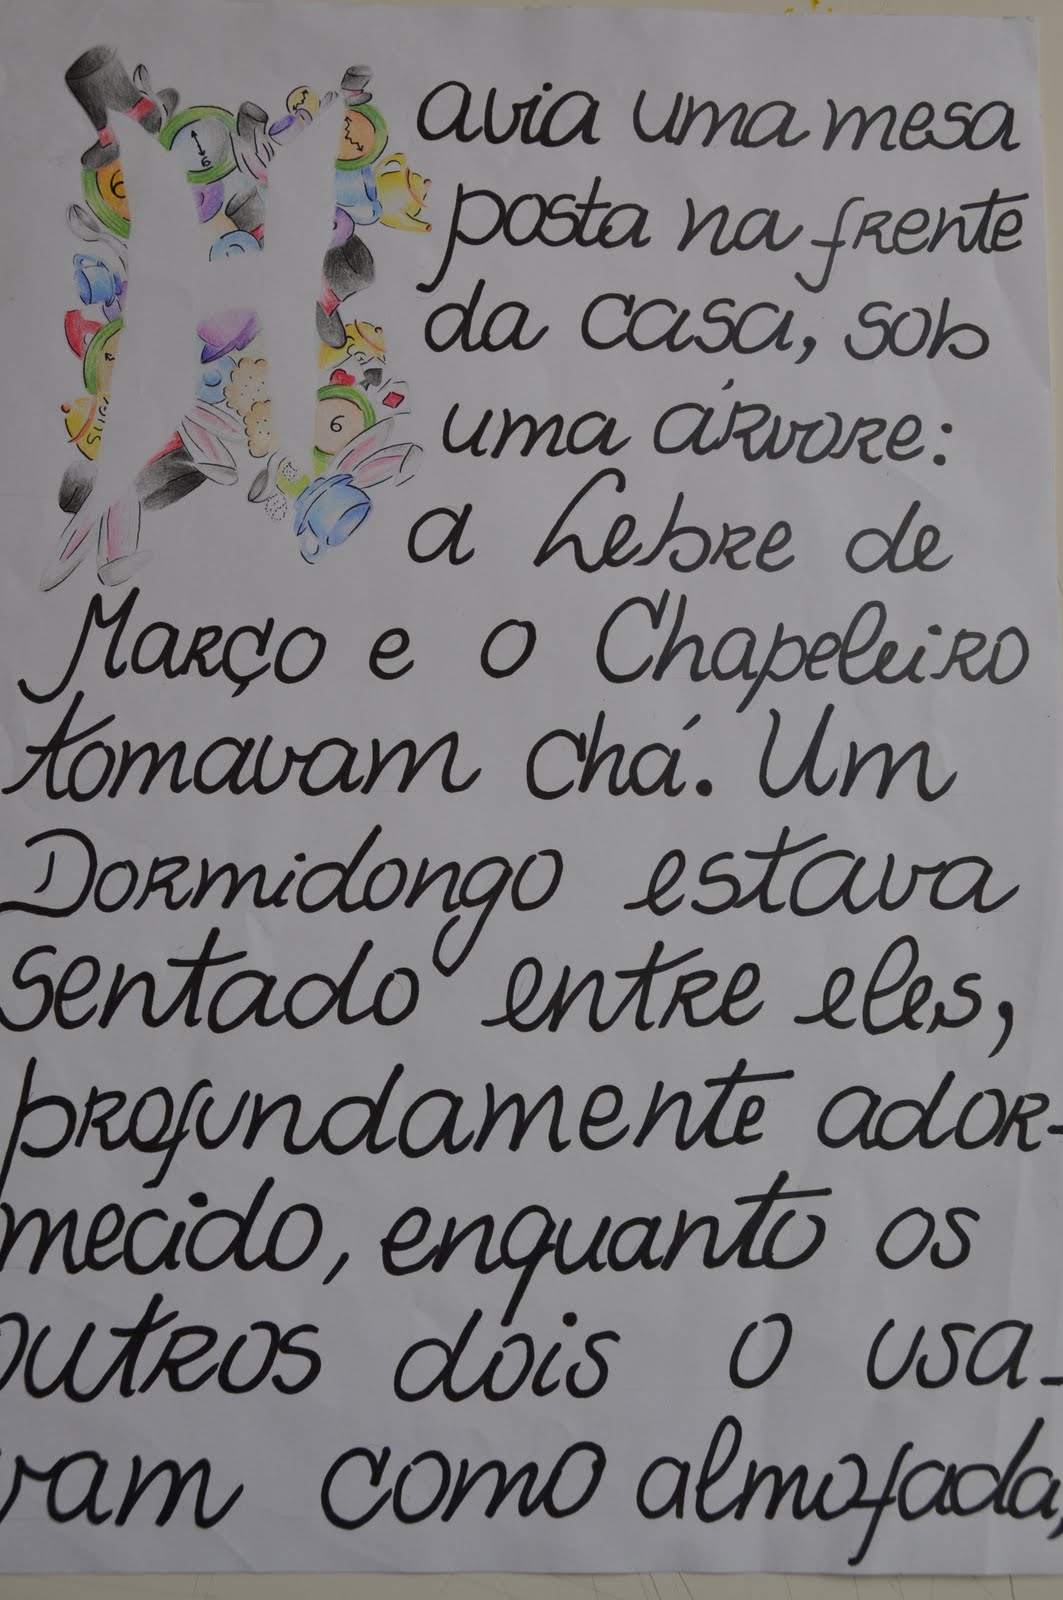 Havia uma mesa
posta na frente
da casa, sob
uma árvore:
a Lebre de
Março e o Chapeleiro
tomavam chá. Um
Dormidongo estava
sentado entre eles,
profundamente ador-
mecido, enquanto os
outros dois o usa-
vam como almofada,